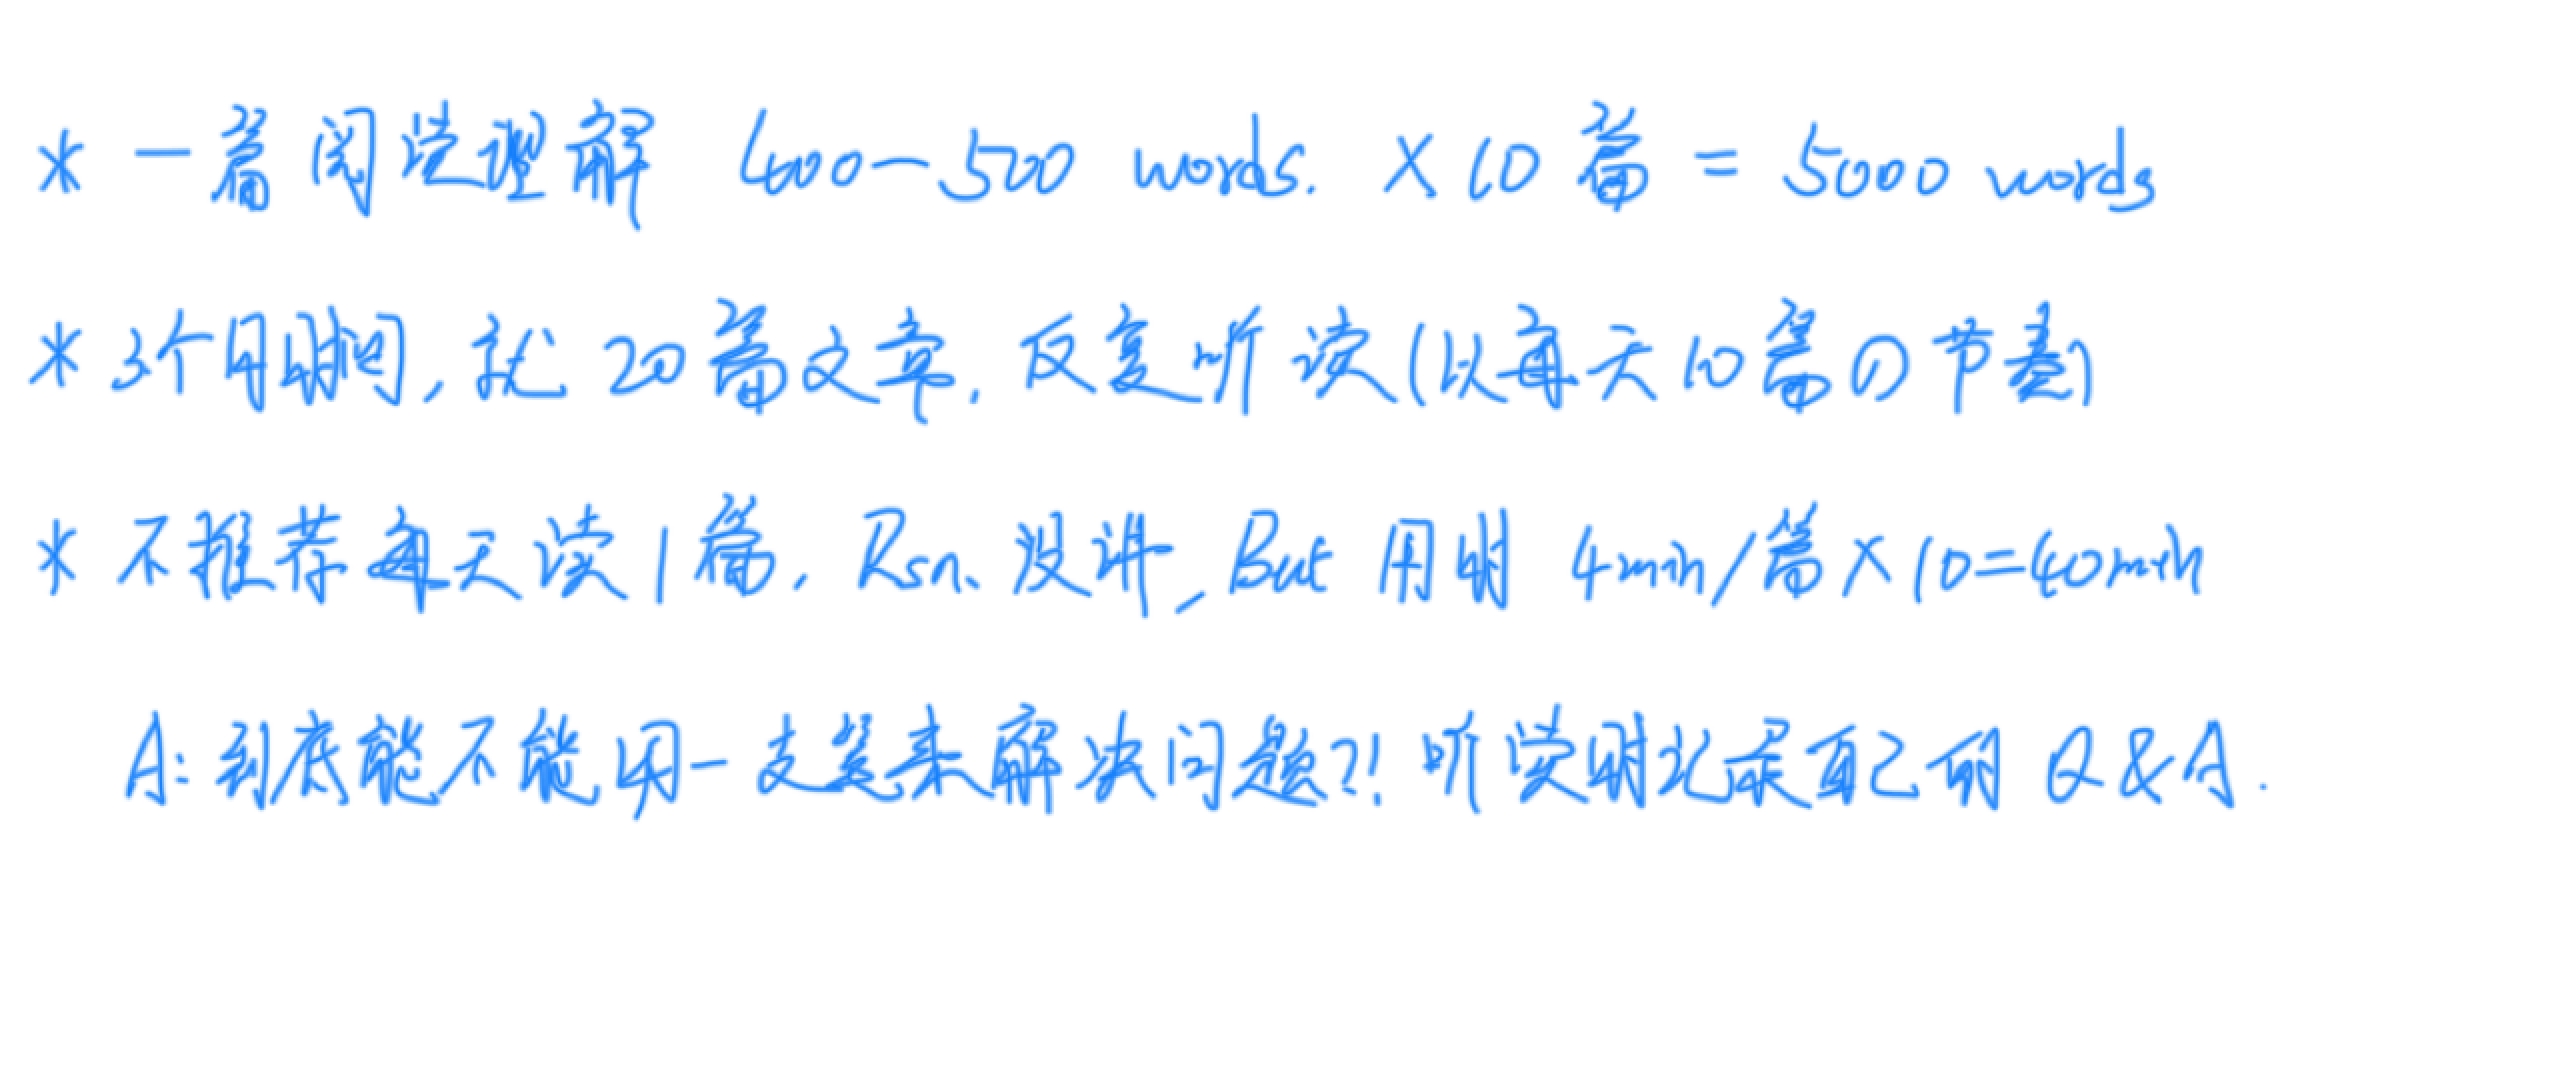 * 一篇阅读理解 400-500 words. ×10篇 = 5000 words
* 3个月时间, 就 20篇文章, 反复听读(以每天10篇の节奏)
* 不推荐每天读1篇, Rsn. 没讲, But 用时 4min/篇×10=40min
A: 到底能不能用一支笔来解决问题?! 听读时记录自己的 Q&A.